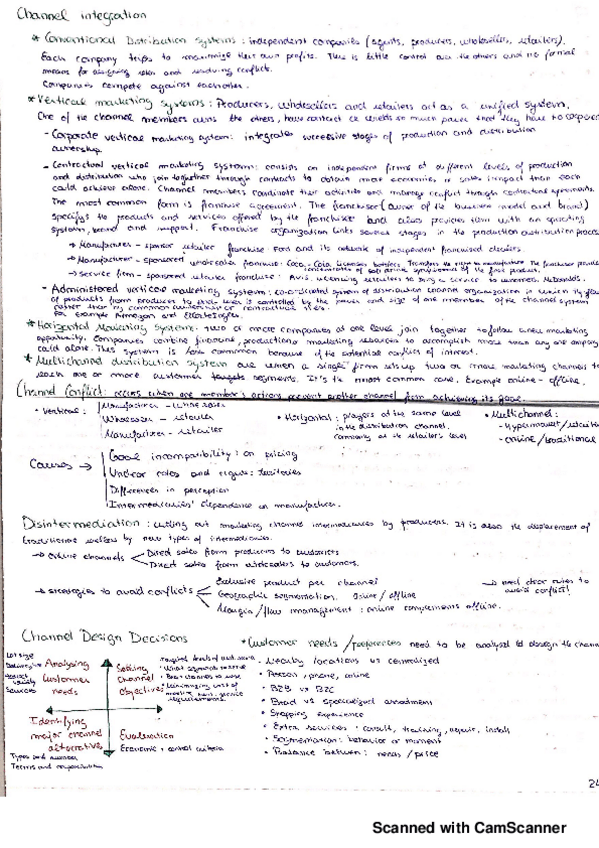 Channel integration
* Conventional Distribution systems: independent companies (agents, producers, wholesalers, retailers).
Each company tries to maximize their own profits. There is little control over the others and no formal
means for assigning roles and resolving conflicts.
Companies compete against eachother.
* Vertical marketing systems: Producers, wholesalers and retailers act as a unified system.
One of the channel members owns the others, have contract or so much power that they have to cooperate
- Corporate vertical marketing system: integrates successive stages of production and distribution
ownership.
- Contractual vertical marketing system: consists on independent firms at different levels of production
and distribution who join together through contracts to obtain more economies or sales impact than each
could achieve alone. Channel members coordinate their activities and manage conflict through contractual agreements.
The most common form is franchise agreement. The franchiser (owner of the business model and brand)
specifys the products and services offered by the franchise and also provides them with an operating
system, brand and support. Franchise organization links several stages in the production distribution process
→ Manufacturer - sponsor retailer franchise: Ford and its network of independent franchised dealers.
→ Manufacturer - sponsored wholesaler franchise: Coca-Cola licenses bottlers.
→ Service firm - sponsored retailer franchise: Avis
- Administered vertical marketing system: coordinated system of distribution channel organization in which the flow
of products from producer to end user is controlled by the power and size of one member of the channel system
rather than by common ownership or contractual ties.
for example Amazon and
* Horizontal Marketing Systems: two or more companies at one level join together to follow a new marketing
opportunity. Companies combine financial, production or marketing resources to accomplish more than any one company
could alone. This system is less common because of the potential conflicts of interest.
* Multichannel distribution system are when a single firm sets up two or more marketing channels to
reach one or more customer targets segments. It's the most common one. Example online - offline.
Channel Conflict: occurs when one member's actions prevent another channel from achieving its goal.
• Vertical:
Manufacturer - wholesaler
Wholesaler - retailer
Manufacturer - retailer
• Horizontal: players at the same level
in the distribution channel.
Commonly at the retailer's level
• Multichannel:
- Hypermarket/
- online/traditional
Causes →
Goal incompatibility: on pricing
Unclear roles and rights: territories
Differences in perception
Intermediaries' dependence on manufacturer.
Disintermediation: cutting out marketing channel intermediaries by producers. It is also the displacement of
traditional sellers by new types of intermediaries.
→ Online channels
Direct sales from producers to customers
Direct sales from wholesalers to customers.
→ strategies to avoid conflicts
Exclusive product per channel
Geographic segmentation. Online/offline
Margin/flow management: online complements offline.
→ need clear rules to
avoid conflict!
Channel Design Decisions
Lot size
Analysing
customer
needs
Setting
channel
objectives
Identifying
major channel
alternatives
Evaluation
Economic + control criteria
Types and number
Terms and responsibilities
* Customer needs / preferences need to be analyzed to design the channel
• Nearby locations vs centralized
• Person, phone, online
• B2B vs B2C
• Broad vs specialized assortment
• Shopping experience
• Extra services: consult, training, repair, install
• Segmentation: behavior or moment
• Balance between: needs / price
24
Scanned with CamScanner